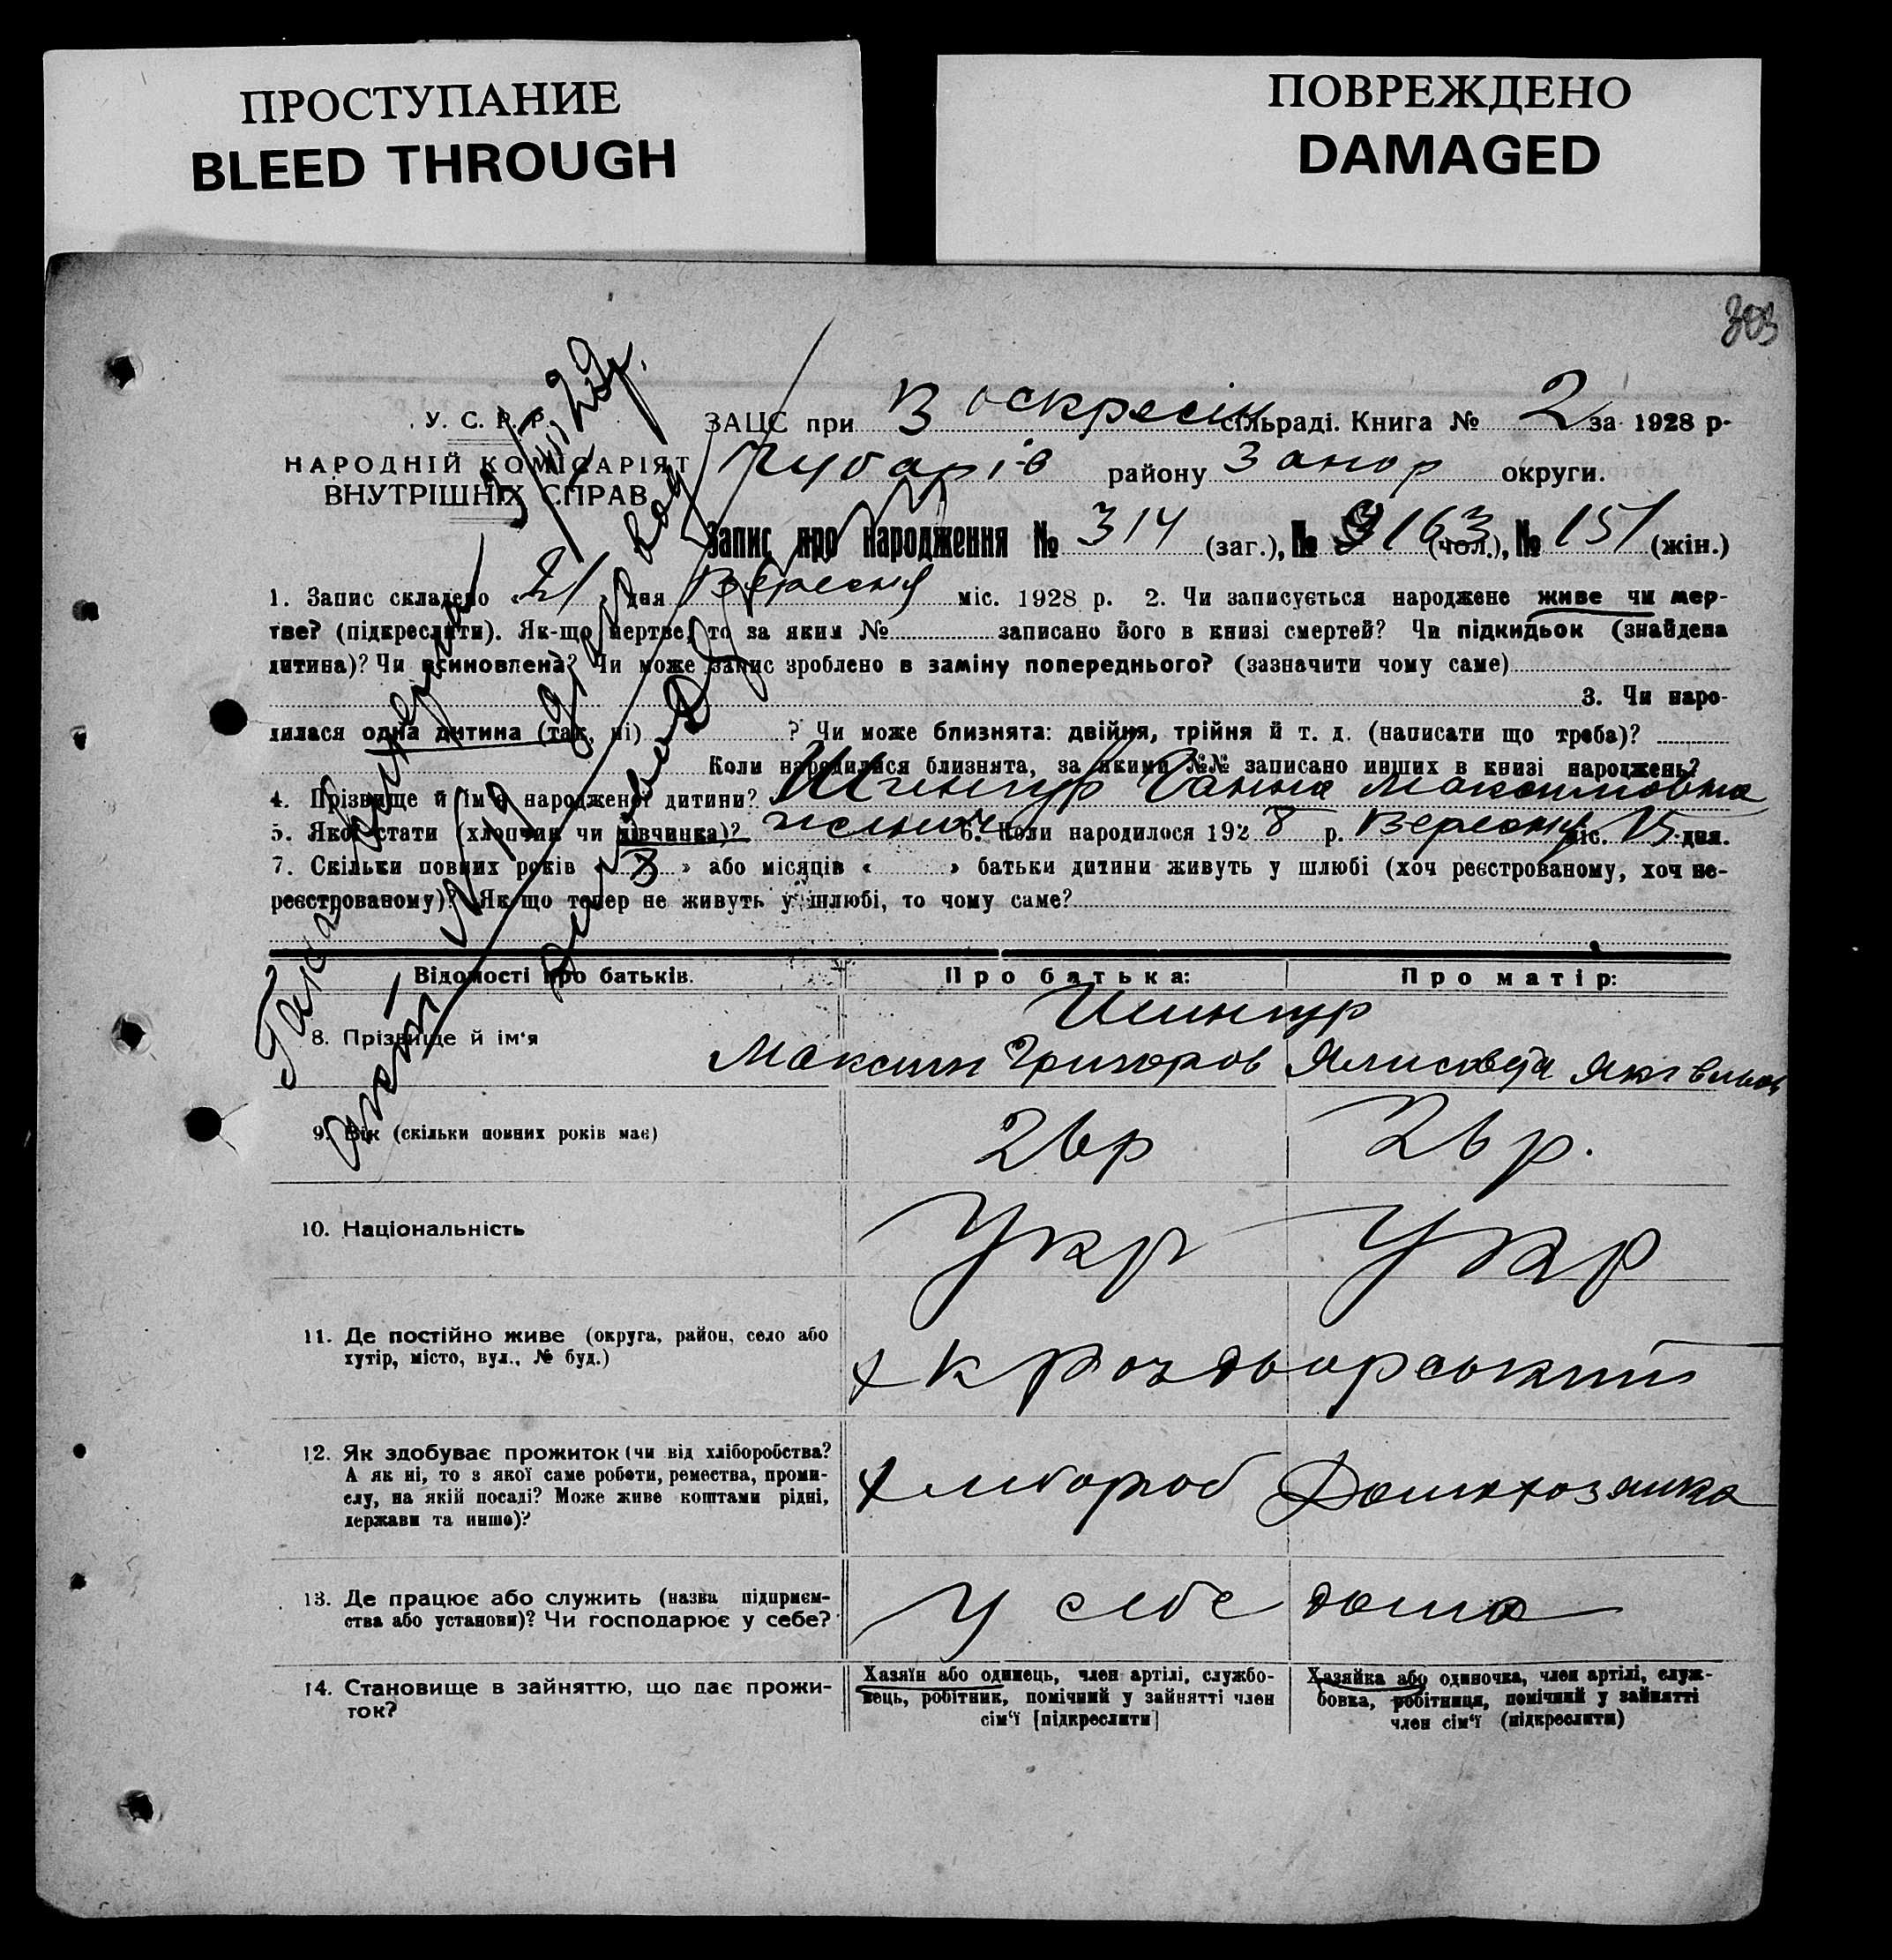 ПРОСТУПАНИЕ
BLEED THROUGH
ПОВРЕЖДЕНО
DAMAGED
303
У. С. Р. Р.
НАРОДНІЙ КОМІСАРІЯТ
ВНУТРІШНІХ СПРАВ
ЗАЦС при Воскресін сільраді. Книга № 2 за 1928 р-
Чубарів району Запор округи.
Запис про народження № 314 (заг.), № 163 (чол.), № 151 (жін.)
1. Запис складено «21» дня Вересня міс. 1928 р. 2. Чи записується народжене живе чи мер-
тве? (підкреслити). Як-що мертве, то за яким № записано його в книзі смертей? Чи підкидьок (знайдена
дитина)? Чи всиновлена? Чи може запис зроблено в заміну попереднього? (зазначити чому саме)
3. Чи наро-
дилася одна дитина (так, ні) ? Чи може близнята: двійня, трійня й т. д. (написати що треба)?
Коли народилися близнята, за якими №№ записано инших в книзі народжень?
4. Прізвище й ім'я народженої дитини? Ганна Максимовна
5. Якої статі (хлопчик чи дівчинка)? 6. Коли народилося 1928 р. Вересня міс. 15 дня.
7. Скільки повних років « 3 » або місяців « » батьки дитини живуть у шлюбі (хоч реєстрованому, хоч не-
реєстрованому)? Як що тепер не живуть у шлюбі, то чому саме?
Відомості про батьків. Про батька: Про матір:
8. Прізвище й ім'я Максим Григоров Ялисовета Яківльов
9. Вік (скільки повних років має) 26р 26 р.
10. Національність Укр Укр
11. Де постійно живе (округа, район, село або
хутір, місто, вул., № буд.)
12. Як здобуває прожиток (чи від хліборобства? Хлибороб Домохозяика
А як ні, то з якої саме роботи, ремества, проми-
слу, на якій посаді? Може живе коштами рідні,
держави та инше)?
13. Де працює або служить (назва підприєм- У себе дома
ства або установи)? Чи господарює у себе?
14. Становище в зайняттю, що дає прожи-
ток?
Хазяїн або одинець, член артілі, службо-
вець, робітник, помічний у зайнятті член
сім'ї [підкреслити]
Хазяйка або одиночка, член артілі, служ-
бовка, робітниця, помічний у зайнятті
член сім'ї (підкреслити)